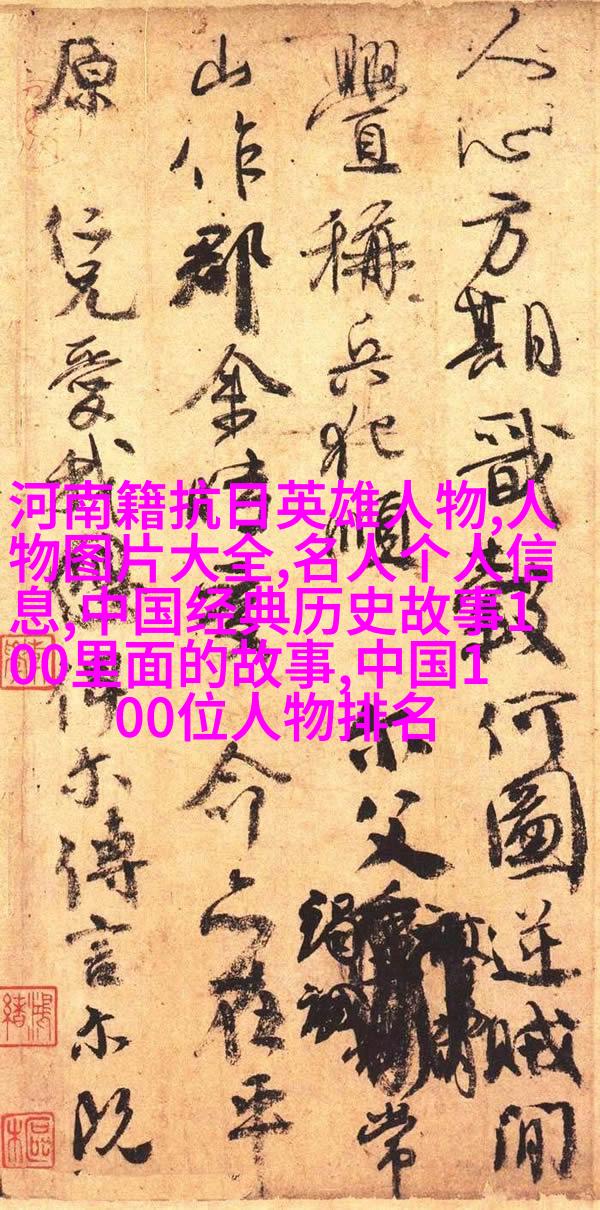 人心方期戩穀何圖逆賊間
釁稱兵犯順尔父常
山作郡余時受命亦在平
原仁兄愛我俾尔傳言尔既
河南籍抗日英雄人物,人
物图片大全,名人个人信
息,中国经典历史故事1
00里面的故事,中国1
00位人物排名